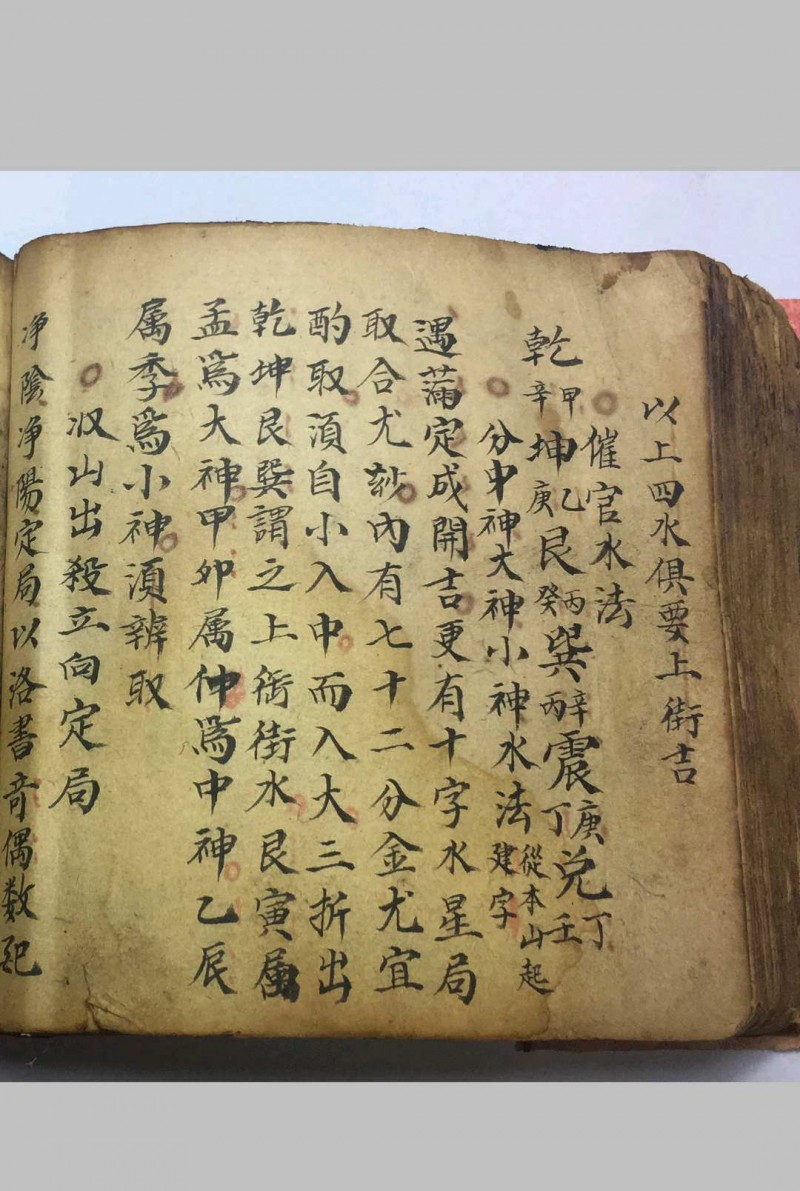 以上四水俱要上街吉
催官水法
乾甲辛坤乙庚艮丙癸巽辛丙震庚丁兌丁壬
分中神大神小神水法從本山起建字
遇滿定成開吉更有十字水星局
取合尤玅內有七十二分金尤宜
酌取湏自小入中而入大三折出
乾坤艮巽謂之上衙街水艮寅属
孟爲大神甲卯属仲爲中神乙辰
属季爲小神湏辨取
収山出殺立向定局
净陰净陽定局以洛書竒偶数配